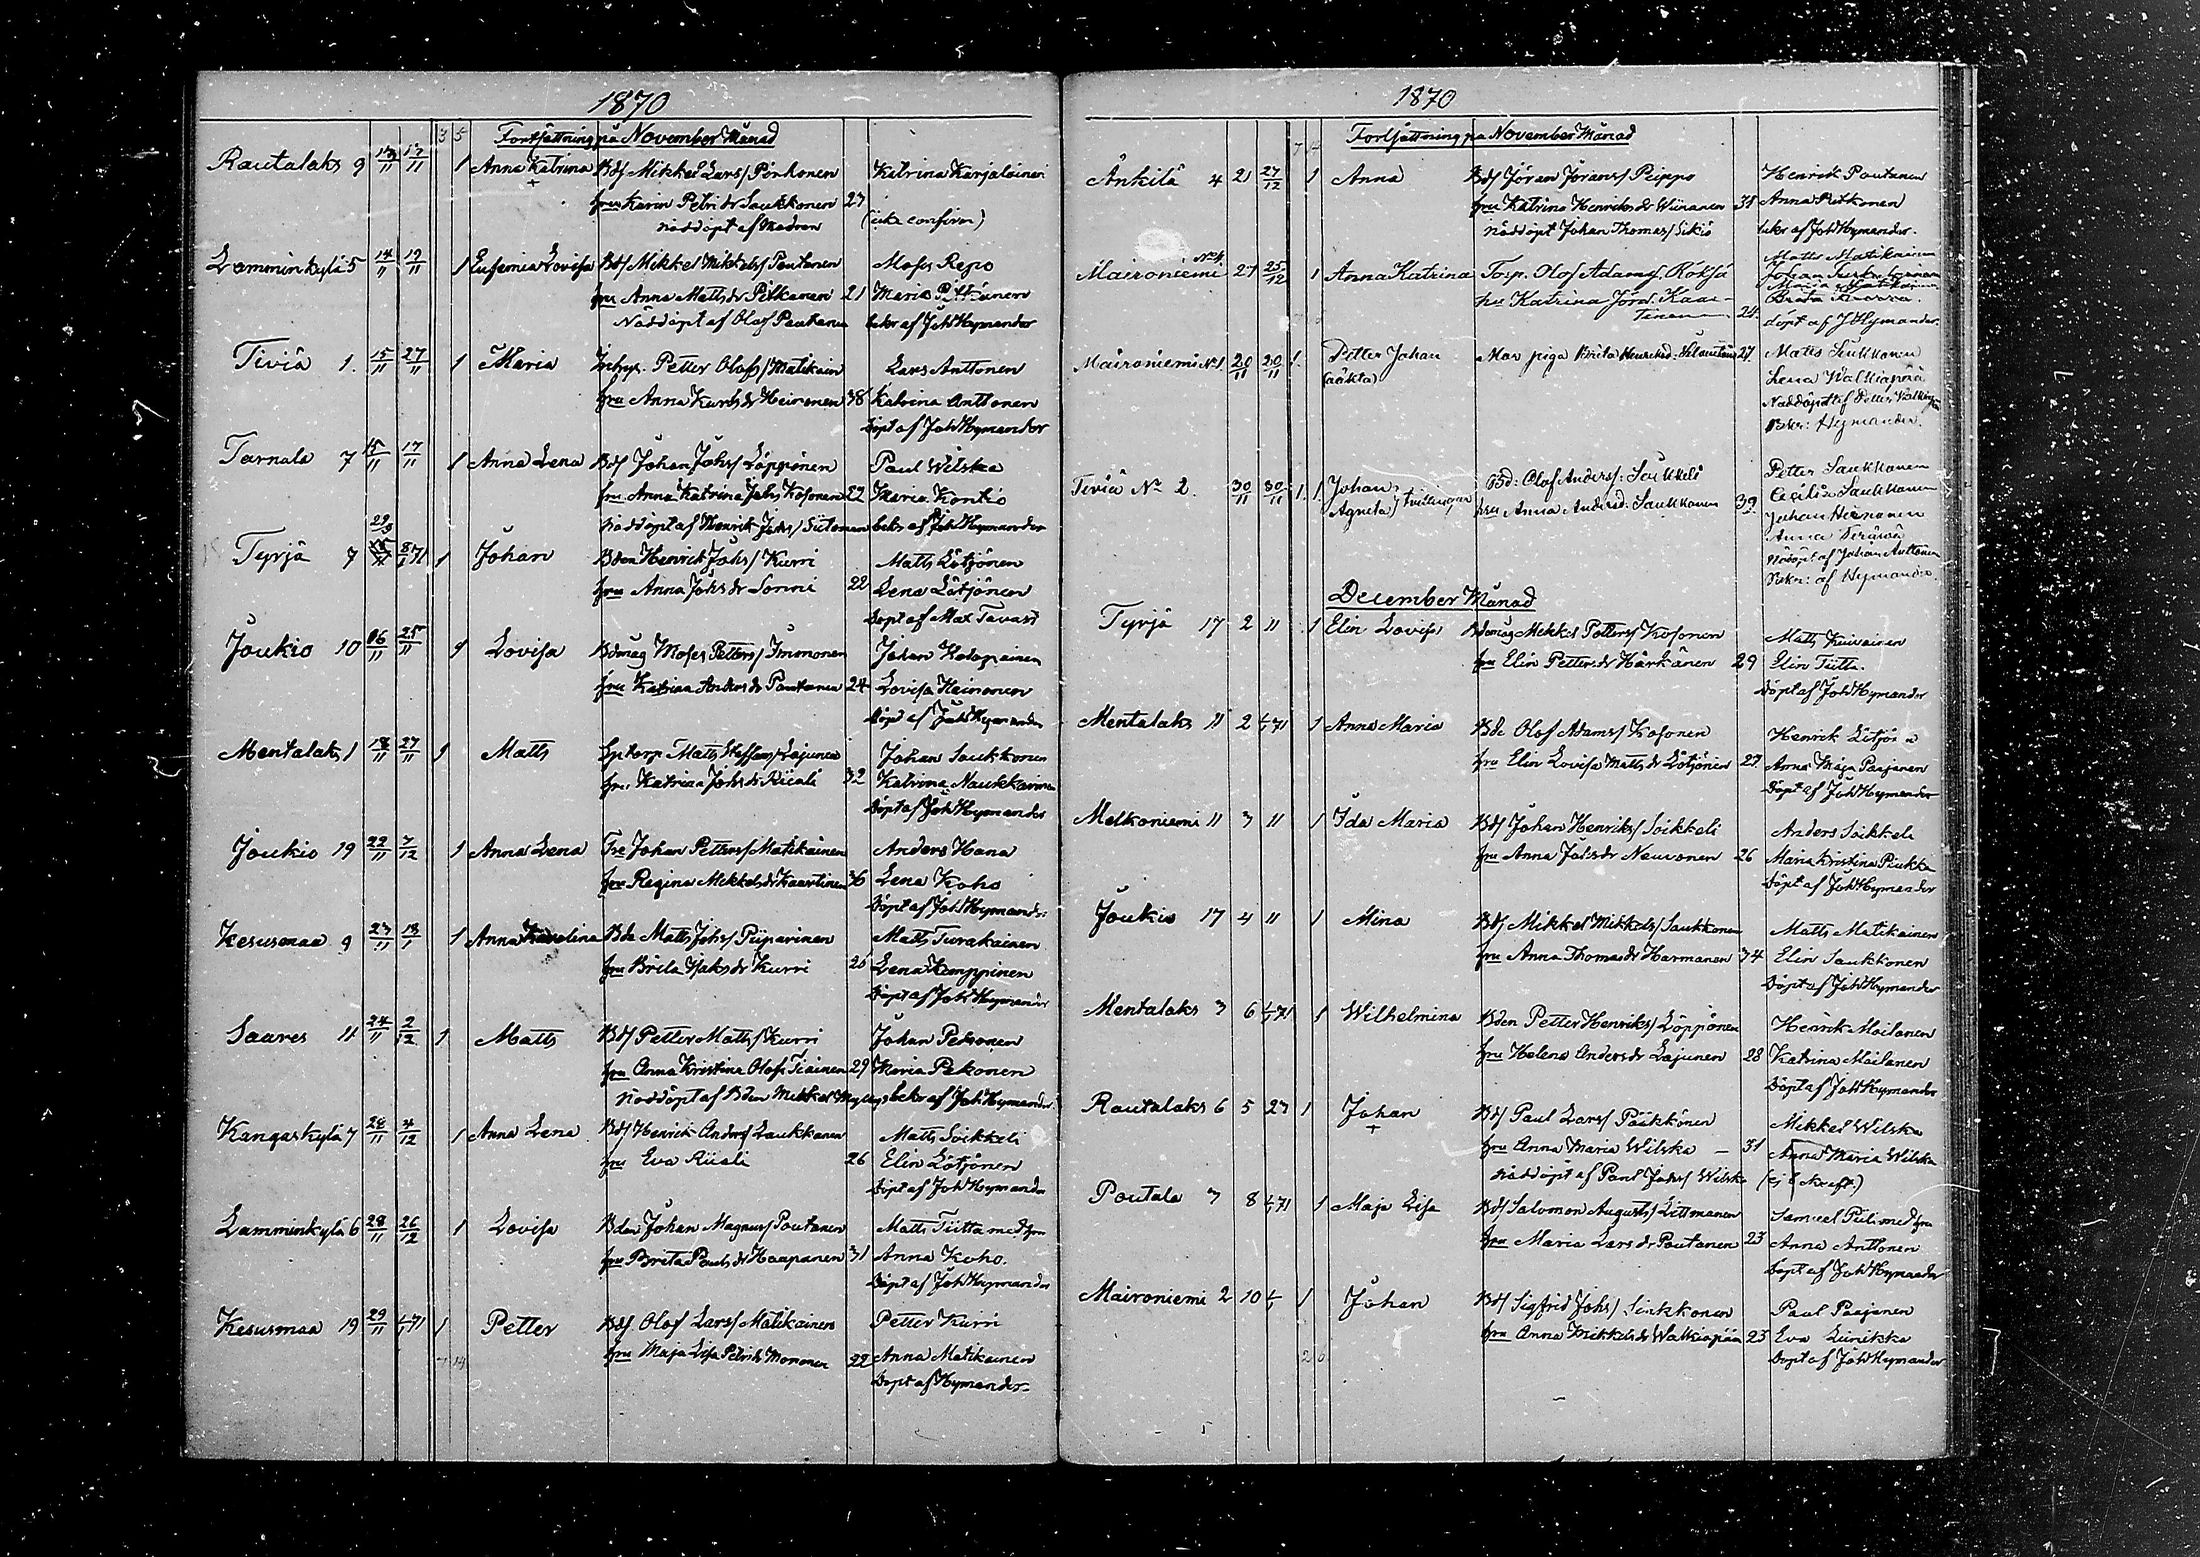 1870
3 5 Fortsättning på November Månad
Rautalaks 9 13/11 17/11 1 Anna Katrina Bds Mikkel Lars/ Pörhonen Katrina Karjalainen
+ fru Karin Petri dr Saukkonen 27 (icke confirm)
nöddöpt af Modren
Lamminkylä 5 14/11 19/11 1 Eufemia Lovisa Bds Mikkel Mikkels/ Poutanen Moses Repo
fru Anna Matts dr Pitkänen 21 Maria Pitkänen
Nöddöpt af Olof Poutanen bekr af Joh Hymander
Tiviä 1. 15/11 27/11 1 Maria Inhys. Petter Olofs/ Matikain Lars Anttonen
fru Anna Kurts dr Heinonen 38 Katrina Anttonen
Döpt af Joh Hymander
Tarnala 7 15/11 17/11 1 Anna Lena Bds Johan Johs/ Löppönen Paul Wilska
fru Anna Katrina Johs Kosonen 22 Maria Kontio
nöddöpt af Henrik Johs/ Siitonen bekr af Joh Hymander
Tyrjä 7 8/1 71 1 Johan Bden Henrick Johs/ Kurri Matts Lötjönen
fru Anna Johs dr Sormi 22 Lena Lötjönen
Döpt af Max Tavast
Joukio 10 16/11 25/11 1 Lovisa Bdmåg Moses Petters/ Immonen Johan Kolopainen
fru Katrina Anders dr Poutanen 24 Lovisa Heinonen
Döpt af Joh Hymander
Mentalaks 1 18/11 27/11 1 Matts Sptorp Matts Staffans/ Lajunen Johan Saukkonen
fru Katrina Johs dr Riiali 32 Katrina Naukkarinen
Döpt af Joh Hymander
Joukio 19 22/11 7/12 1 Anna Lena Johan Petters/ Matikainen Anders Hana
fru Regina Mikkels dr Kaartinen 36 Lena Koho
Döpt af Joh Hymander
Kesusmaa 9 23/11 13/1 1 Anna Karolina Bde Matts Johs/ Piiparinen Matts Turakainen
fru Brita Isaks dr Kurri 26 Lena Kemppinen
Döpt af Joh Hymander
Saares 11 24/11 2/12 1 Matts Bds Petter Matts/ Kurri Johan Pekonen
fru Anna Kristina Olofs Tiainen 29 Maria Pekonen
nöddöpt af Bden Mikkel bekr af Joh Hymander
Kangaskylä 7 28/11 4/12 1 Anna Lena Bds Henrik Anders/ Laukkanen Matts Soikkeli
fru Eva Riiali 26 Elin Lötjönen
Döpt af Joh Hymander
Lamminkylä 6 28/11 26/12 1 Lovisa Bden Johan Magnus/ Poutanen Matts Tiitta med fru
fru Brita Pauls dr Haapanen 31 Anna Koho.
Döpt af Joh Hymander
Kesusmaa 19 29/11 1/1 71 1 Petter Bds Olof Lars/ Matikainen Petter Kurri
fru Maja Lisa Petri dr Mononen 22 Anna Matikainen
Döpt af Hymander
1870
Fortsättning på November Månad
Änkilä 4 21 27/12 1 Anna Bds Jöran Jörans/ Peippo Henrik Poutanen
fru Katrina Henriks dr Wiinanen 31 Anna Pitkonen
nöddöpt Johan Thomas/ Sikiö bekr af Joh Hymander.
Maironiemi No 4 27 25/12 1 Anna Katrina Torp. Olof Adams/ Röksä Matts Matikainen
hu Katrina Jörd. Kaar-
tinen 24. döpt af J Hymander.
Maironiemi No 1. 20/11 20/11 1. Petter Johan Mor piga Brita Henriksd: 27 Matts Sinkkonen
(oäkta) Lena Walkiapää
Nöddöpt af Petter Walkiapää
Bekr: Hymander.
Tiviä No 2. 30/11 30/11 1. 1. Johan Bd: Olof Anders/: Soikkeli Petter Saukkonen
Agneta } tvillingar hu Anna Andersd. Saukkonen 39. Cecilia Saukkonen
Johan Heinonen
Anna
Nödöpt af Johan Anttonen
Bekr: af Hymander.
December Månad
Tyrjä 17 2 11 1 Elin Lovisa Bdemåg Mikkel Petters/ Kosonen Matts Kuivainen
fru Elin Petters dr Härkänen 29 Elin Tiitta.
Döpt af Joh Hymander
Mentalaks 11 2 1/1 71 1 Anna Maria Bde Olof Adams/ Kosonen Henrik Lötjönen
fru Elin Lovisa Matts dr Lötjönen 27. Anna Maja Paajanen
Döpt af Joh Hymander
Melkoniemi 11 3 11 1 Ida Maria Bds Johan Henriks/ Soikkeli Anders Soikkeli
fru Anna Johs dr Neuvonen 26 Maria Kristina Piukka
Döpt af Joh Hymander
Joukio 17 4 11 1 Mina Bds Mikkel Mikkels/ Saukkonen Matts Matikainen
fru Anna Thomas dr Harmanen 34 Elin Saukkonen
Döpt af Joh Hymander
Mentalaks 3 6 1/1 71 1 Wilhelmina Bden Petter Henriks/ Löppönen Henrik Moilanen
fru Helena Anders dr Lajunen 28 Katrina Moilanen
Döpt af Joh Hymander
Rautalaks 6 5 27 1 Johan Bds Paul Lars/ Pääkkönen Mikkel Wilska
+ fru Anna Maria Wilska — 31 Anna Maria Wilska
nöddöpt af Paul Johs/ Wilska
Poutala 3 8 1/1 71 1 Maja Lisa Bds Salomon Augusts/ Littmanen Samuel Puli med fru
fru Maria Lars dr Poutanen 23 Anna Anttonen
Döpt af Joh Hymander
Maironiemi 2 10 1/1 1 Johan Bds Sigfrid Johs/ Sinkkonen Paul Paajanen
fru Anna Mikkels dr Walkiapää 23 Eva Liinikka
2 6 Döpt af Joh Hymander